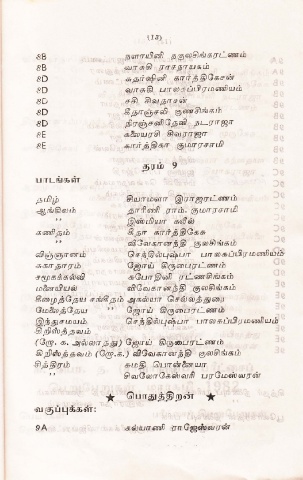 (13)
8B நளாயினி நகுலசிங்கரட்ணம்
8B வாசுகி ராசநாயகம்
8D சுதர்ஷினி கார்த்திகேசன்
8D வாசுகி பாலசுப்பிரமணியம்
8D சசி சிவநாசன்
8D கீதாஞ்சலி குணசிங்கம்
8D நிரஞ்சனிதேவி நடராஜா
8E கலைமரசி சிவராஜா
8E கார்த்திகா குமாரசாமி
தரம் 9
பாடங்கள்
தமிழ் சியாமலா இராஜரட்ணம்
ஆங்கிலம் தாரிணி ராம் குமாரசாமி
,, இஸ்மியா கபீல்
கணிதம் கீதா கார்த்திகேசு
,, விவேகானந்தி குலசிங்கம்
விஞ்ஞானம் செந்தில்புஷ்பா பாலசுப்பிரமணியம்
சுகாதாரம் ஜோய் கிருபைரட்ணம்
சமூகக்கல்வி சுபோதினி ரட்ணசிங்கம்
மனையியல் விவேகானந்தி குலசிங்கம்
கீழைத்தேய சங்கீதம் அகல்யா செல்லத்துரை
மேலைத்தேய ,, ஜோய் கிருபைரட்ணம்
இந்துசமயம் செந்தில்புஷ்பா பாலசுப்பிரமணியம்
கிறிஸ்தவம்
(ரோ. க. அல்லாதது) ஜோய் கிருபைரட்ணம்
கிறிஸ்தவம் (ரோ.க.) விவேகானந்தி குலசிங்கம்
சித்திரம் சுமதி பொன்னையா
,, சிவலோகேஸ்வரி பரமேஸ்வரன்
★ பொதுத்திறன் ★
வகுப்புக்கள்:
9A கல்யாணி ராஜேஸ்வரன்